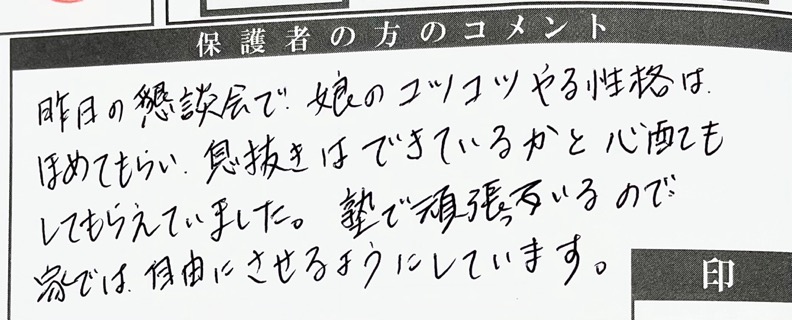 保護者の方のコメント
昨日の懇談会で、娘のコツコツやる性格は、
ほめてもらい、息抜きはできているかと心配ても
してもらえていました。塾で頑張っているので
家では、自由にさせるようにしています。
印